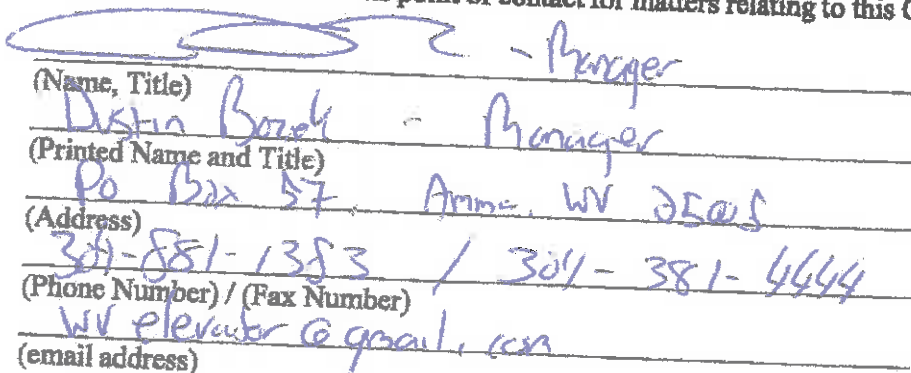 point of contact for matters relating to this
- Manager
(Name, Title)
Dustin - Manager
(Printed Name and Title)
Po Box 57, Amma, WV
(Address)
304-881-1353 / 304-381-4444
(Phone Number) / (Fax Number)
WVelevator@gmail.com
(email address)